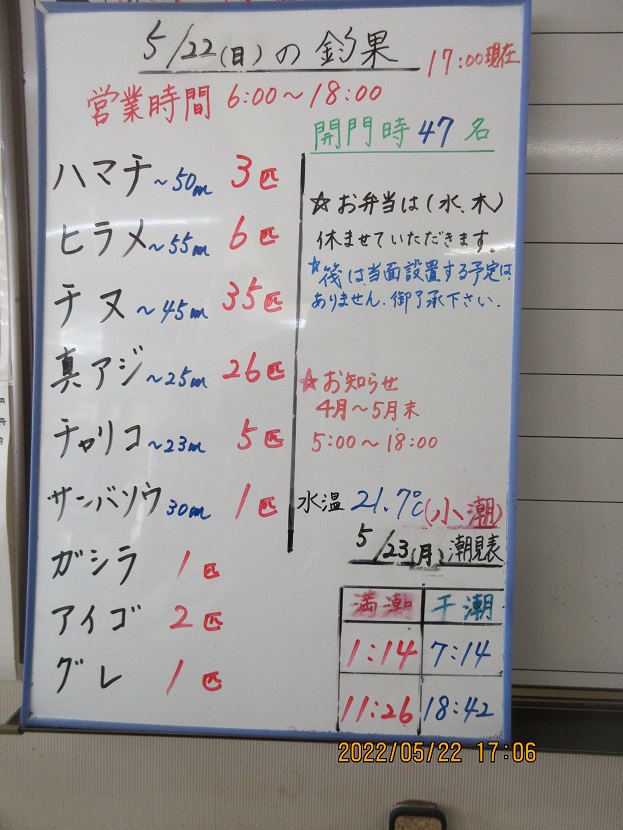 5/22(日)の釣果
17:00現在
営業時間 6:00～18:00
開門時 47名
ハマチ ～50cm 3匹
ヒラメ ～55cm 6匹
チヌ ～45cm 35匹
真アジ ～25cm 26匹
チャリコ ～23cm 5匹
サンバソウ 30cm 1匹
ガシラ 1匹
アイゴ 2匹
グレ 1匹
☆お弁当は(水、木)
休ませていただきます。
☆筏は当面設置する予定は
ありません。御了承下さい。
☆お知らせ
4月～5月末
5:00～18:00
水温 21.7℃(小潮)
5/23(月)潮見表
満潮 干潮
1:14 7:14
11:26 18:42
2022/05/22 17:06